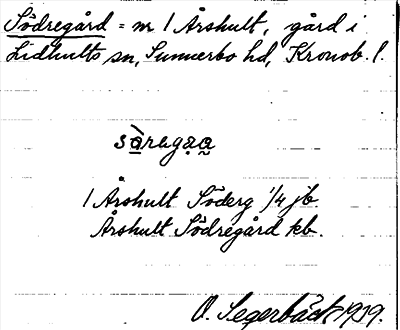 Södregård = m 1 Årshult, gård i
Lidhults sn, Sunnerbo hd, Kronob. l.
sàregạạ
1 Årshult Söderg 1/4 jb.
Årshult Södregård kb.
O. Segerbäck 1919.